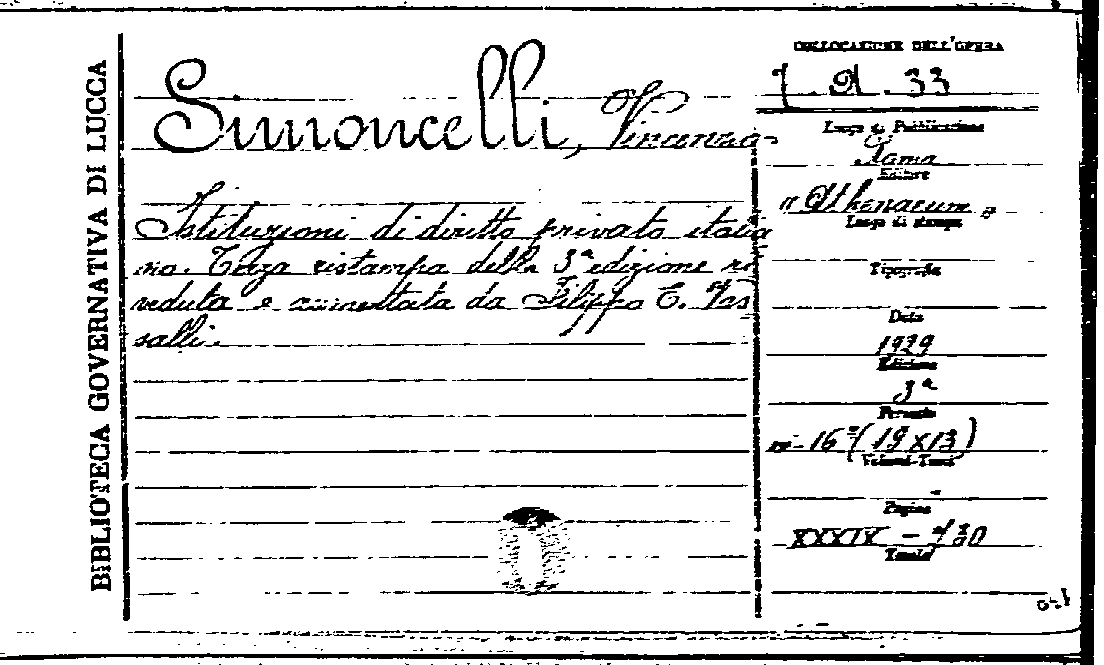 BIBLIOTECA GOVERNATIVA DI LUCCA
Simoncelli, Vincenzo
Istituzioni di diritto privato italia
no. Terza ristampa della 3ª edizione ri
veduta e aumentata da Filippo E. Vas
salli.
COLLOCAZIONE DELL'OPERA
7. A. 33
Luogo di Pubblicazione
Roma
Editore
"Athenaeum"
Luogo di stampa
Tipografia
Data
1929
Edizione
3ª
Formato
in-16° (19X13)
Volumi-Tomi
Pagine
XXXIX - 730
Tavole